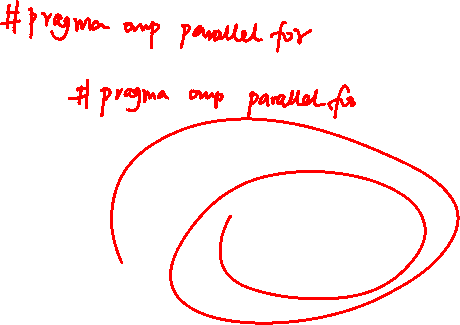 # pragma omp parallel for
# pragma omp parallel for